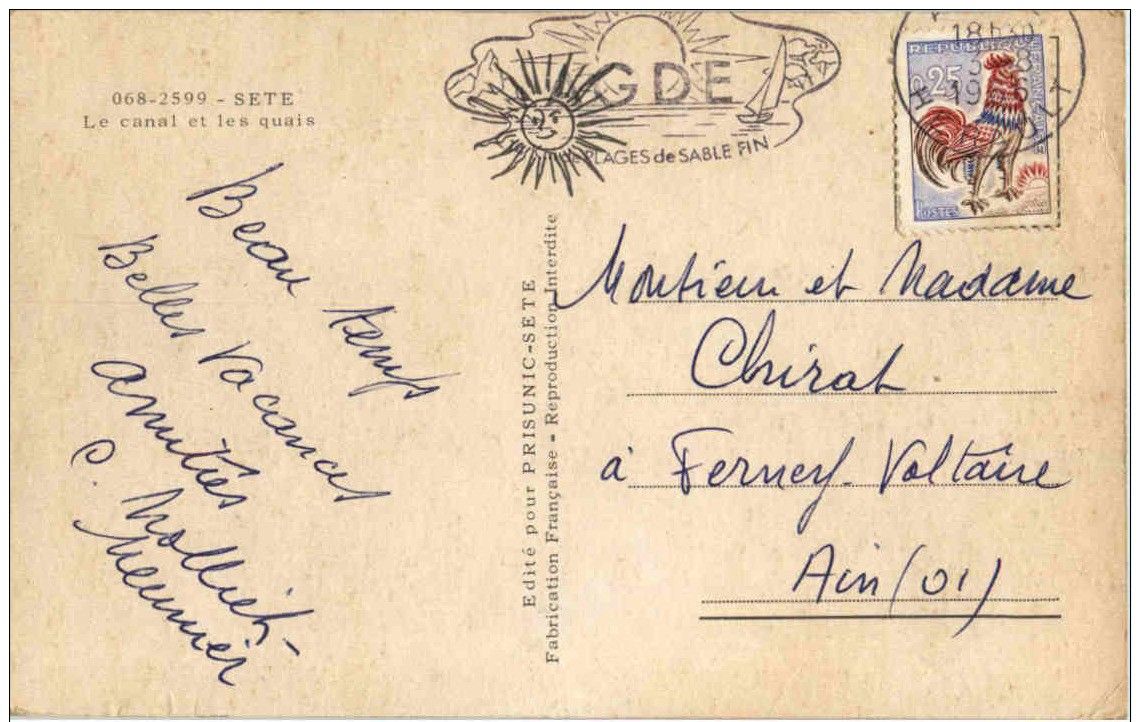 068-2599 - SETE
Le canal et les quais
GDE
PLAGES de SABLE FIN
18H30
REPUBLIQUE FRANÇAISE
0,25
POSTES
Beau temps
Belles Vacances
Amitiés
C. Molliet-
Meunier
Edité pour PRISUNIC-SETE
Fabrication Française - Reproduction Interdite
Monsieur et Madame
Chirat
à Ferney-Voltaire
Ain (01)